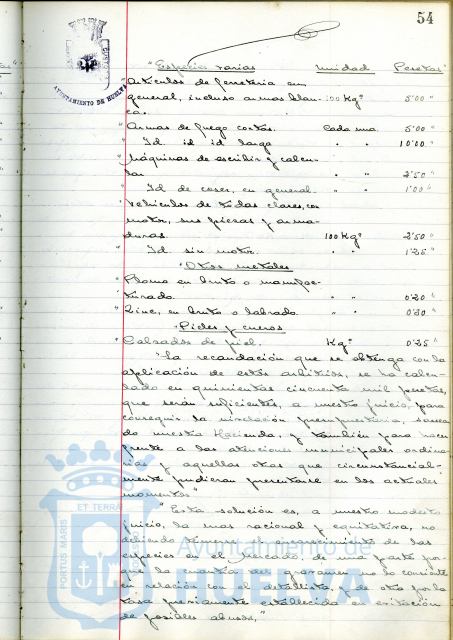 54
AYUNTAMIENTO DE HUELVA
"Especies varias Unidad Pesetas"
"Artículos de ferretería en
general, incluso armas blan- 100 Kgs 5'00 "
cas.
"Armas de fuego cortas. Cada una. 5'00 "
" Id. id id larga " " 10'00 "
"Máquinas de escribir y calcu-
lar " " 2'50 "
" Id de coser, en general. " " 1'00 "
"Vehículos de todas clases, con
motor, sus piezas y arma-
duras. 100 Kgs 2'50 "
" Id. sin motor. " " 1'25 "
"Otros metales
"Plomo en bruto o manufac-
turado. " " 0'20 "
"Zinc, en bruto o labrado. " " 0'30 "
"Pieles y cueros
"Calzados de piel. Kgs 0'25 "
"La recaudación que se obtenga con la
aplicación de estos arbitrios, se ha calcu-
lado en quinientas cincuenta mil pesetas,
que serán suficientes, a nuestro juicio, para
conseguir la nivelación presupuestaria, sanean-
do nuestra Hacienda, y también para hacer
frente a las atenciones municipales ordina-
rias y aquellas otras que circunstancial-
mente pudieran presentarse en los actuales
momentos"
"Esta solución es, a nuestro modesto
juicio, la mas racional y equitativa, no
debiendo temerse el encarecimiento de las
especies en el mercado, de una parte por-
que la cuantía del gravamen no lo consiente
en relación con el detallista, y de otra por la
tasa previamente establecida en evitación
de posibles abusos."
PORTUS MARIS ET TERRAE
Ayuntamiento de
HUELVA